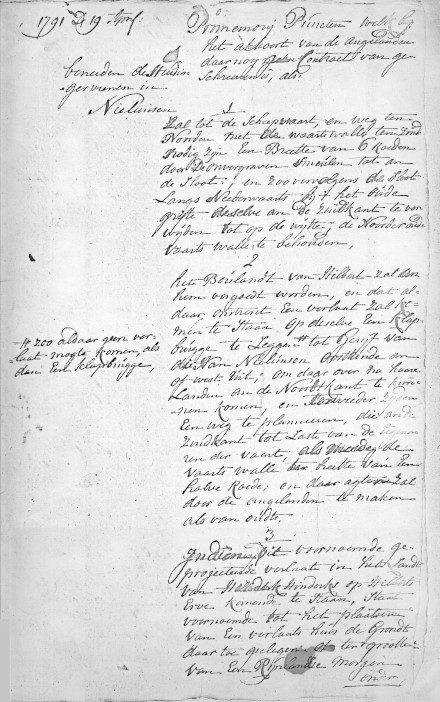 1791 D 19 April:
Promemorij Puncten welke
het accoort van de angelanden
daar nog geen Contract van ge-
schreeven is, als:
beneeden de
gervenen in
Nieluisen
1
Zal tot de Scheepvaart en weg ten
Noorden met de waarts walle ten Zuid
Nodig zijn Een Breette van 6 Roeden
door D'onvergraven tot an
de Sloot; en zoo vervolgens de Sloot
Langs Nederwaarts, bij't het Oude
grifte deselve an de Zuidkant te ver
wijden tot op de wijtte, de Noorder oude
vaarts walle te behouden,
2
het Bouwlandt van Hilbert zal an
hem vergoedt worden, en dat al-
daar omtrent Een verlaat zal ko-
men te Staan, op deselve Een Klap
brugge te Leggen # tot gerijf van
die van Nieluisen Oosteinde an
of west uit; om daar over na haare
Landen an de Noordtkant te kun-
nen komen, en
Een weg te planneeren, die an de
Zuidkant tot Laste van de
ren der vaart, als meede de
vaarts walle ter breette van Een
halve Roede; en daar agter zal
door de angelanden te maken
als van oudts.
# zoo aldaar geen ver-
laat mogte komen, als
dan Een klapbrugge,
3
Indien dit voornoemde ge-
projecteerde verlaat in het Landt
van Hendrik Hinderks op Hilberts
Erve komende te Staan, Staat
voornoemde tot het plaatsen
van Een verlaats huis de Grondt
daar toe gelegen ter grootte
van Een Rijnlandtse Morgen
onder